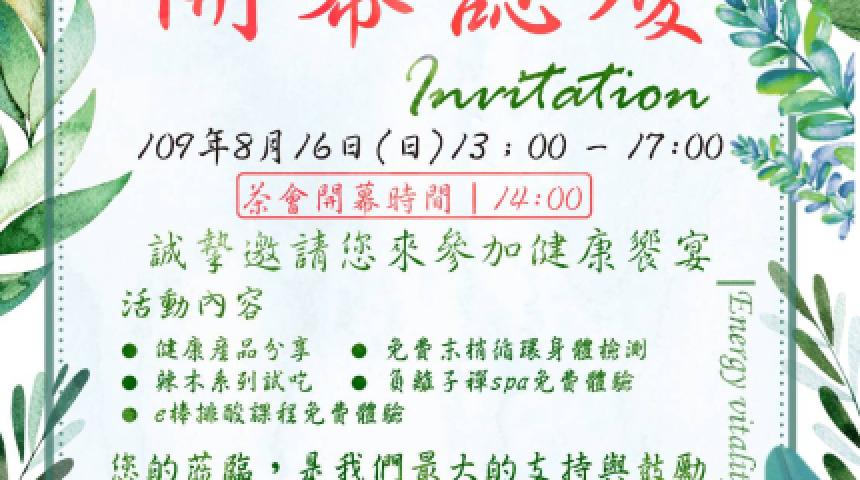 開幕誌慶
Invitation
109年8月16日(日)13:00 - 17:00
茶會開幕時間 | 14:00
誠摯邀請您來參加健康饗宴
活動內容
● 健康產品分享 ● 免費末梢循環身體檢測
● 辣木系列試吃 ● 負離子禪spa免費體驗
● e棒排酸課程免費體驗
您的蒞臨，是我們最大的支持與鼓勵
Energy vitalit